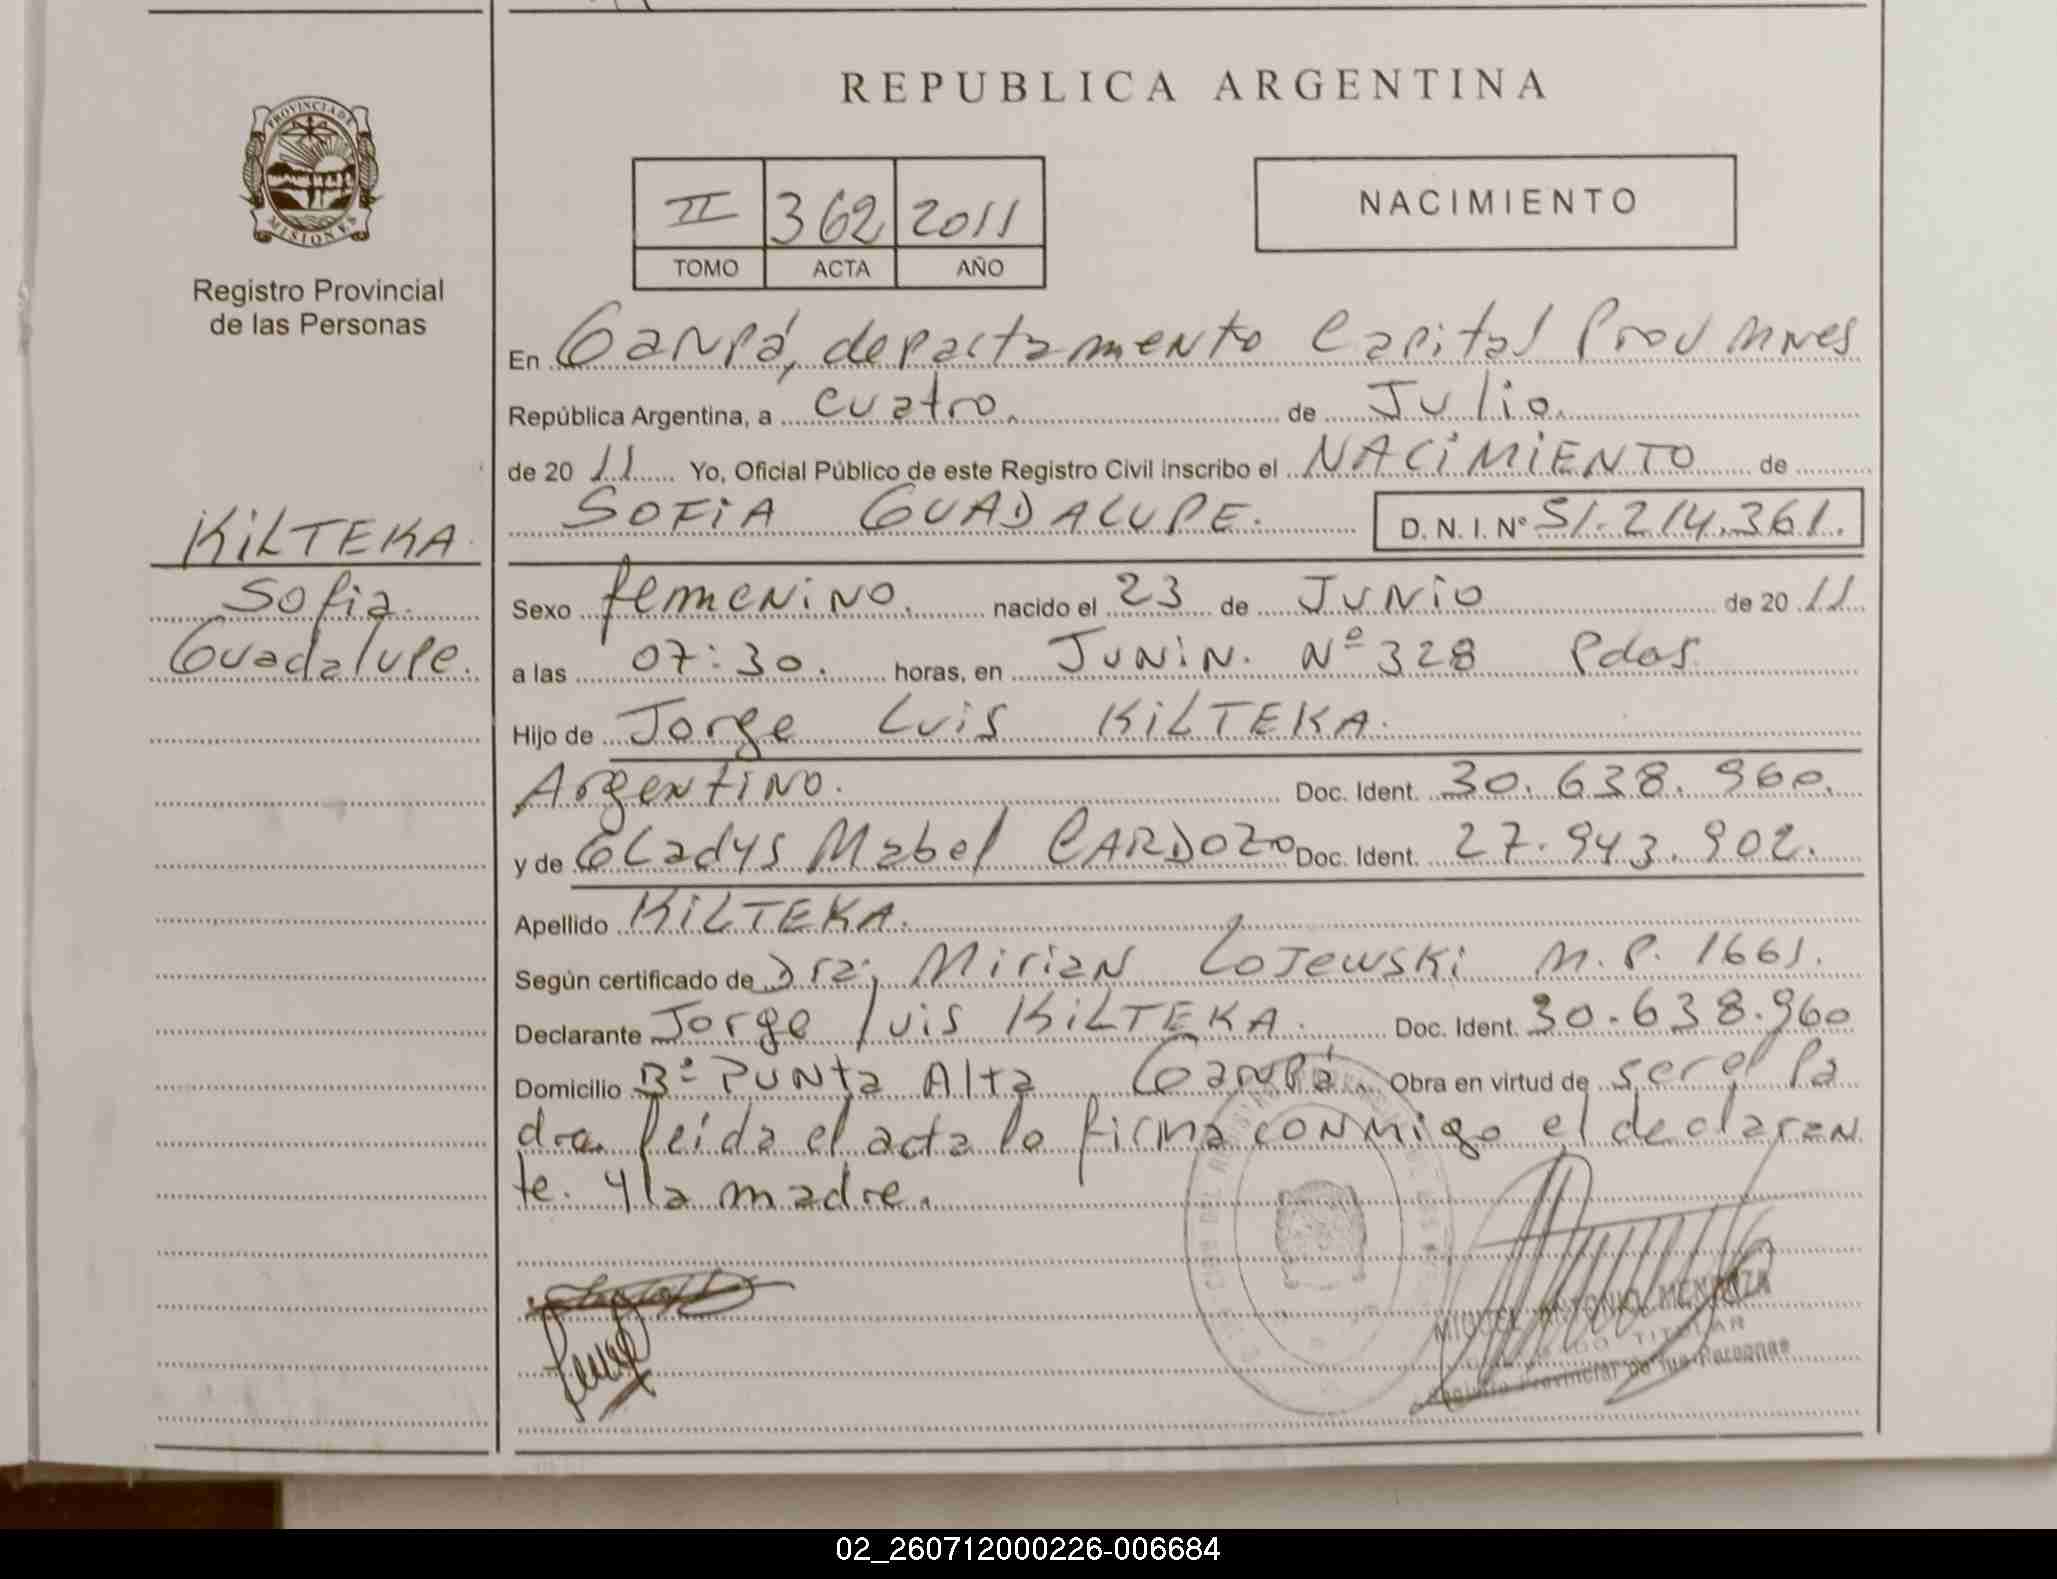 REPUBLICA ARGENTINA
PROVINCIA DE
MISIONES
Registro Provincial
de las Personas
II 362 2011
TOMO ACTA AÑO
NACIMIENTO
En Garupá, departamento Capital Prov Mnes
República Argentina, a cuatro. de Julio.
de 2011 Yo, Oficial Público de este Registro Civil inscribo el NACIMIENTO de
SOFIA GUADALUPE. D. N. I. Nº 51.214.361.
KILTEKA
Sofia
Guadalupe.
Sexo femenino. nacido el 23 de JUNIO de 2011
a las 07:30. horas, en JUNIN. Nº 328 Pdas
Hijo de Jorge Luis KILTEKA.
Argentino. Doc. Ident. 30.638.960.
y de Gladys Mabel CARDOZO Doc. Ident. 27.943.902.
Apellido KILTEKA.
Según certificado de Dra; Mirian Lojewski M.P. 1661.
Declarante Jorge luis KILTEKA. Doc. Ident. 30.638.960
Domicilio Bº Punta Alta Garupá. Obra en virtud de ser el Pa
dre. leida el acta la firma conmigo el declaran
te. y la madre.
MIGUEL ANTONIO MENDOZA
TITULAR
Registro Provincial de las Personas
02_260712000226-006684